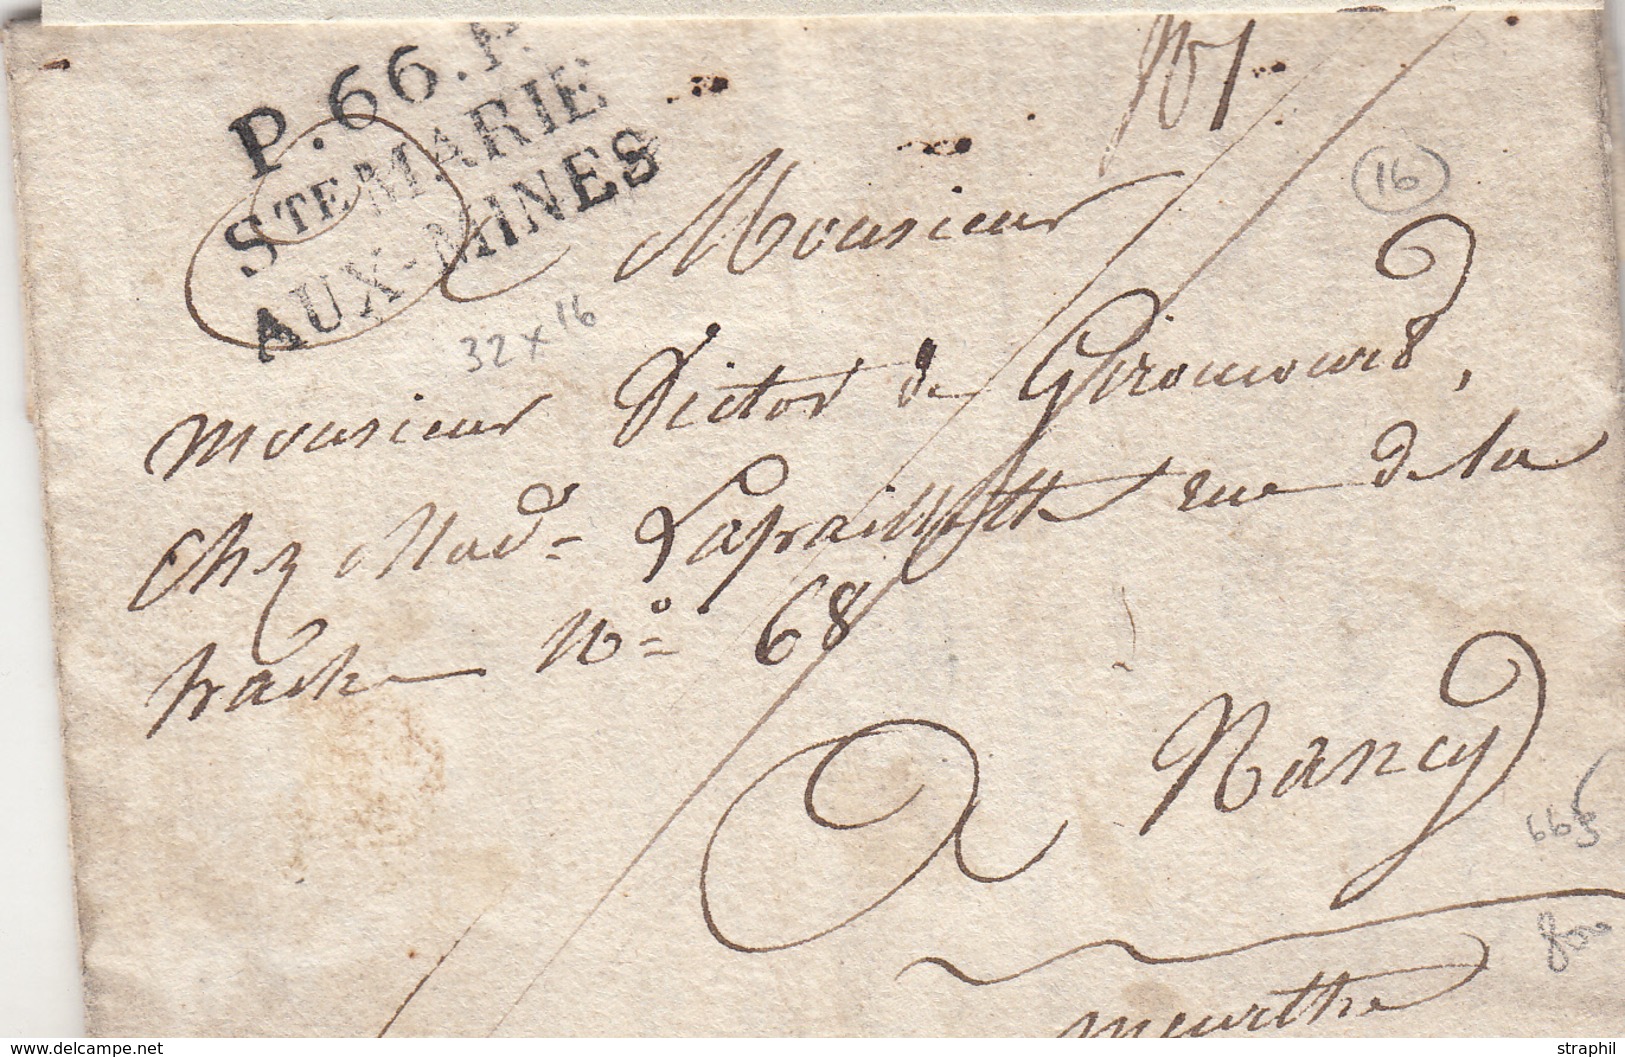 P.66.P.
STE MARIE
AUX-MINES
16
32 x 16
Monsieur
Monsieur Victor de Gironcourt,
Chez Mad.e Lapaillotte rue de la
hache N.o 68
a Nancy
Meurthe
800
delcampe.net
straphil